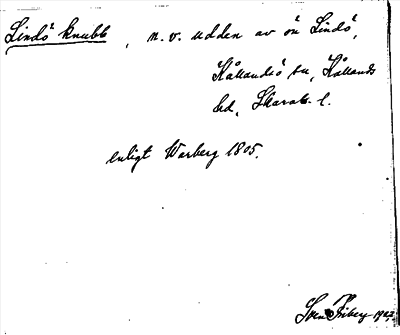 Lindö knubb, n.v. udden av ön Lindö,
Kållandsö sn, Kållands
hd, Skarab. l.
enligt Warberg 1805.
Sven Friberg